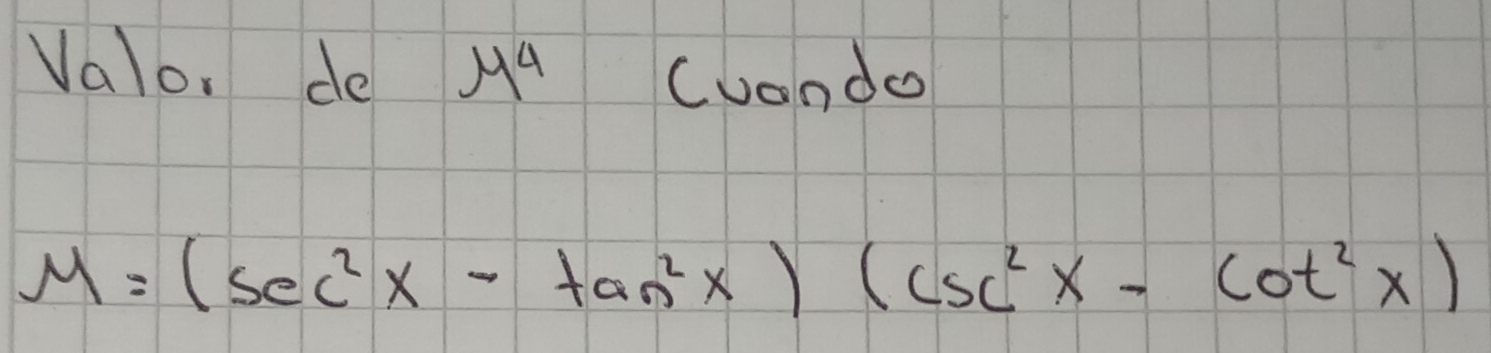 Valor de M⁴ Cuando
M = (sec²x - tan²x) (csc²x - cot²x)